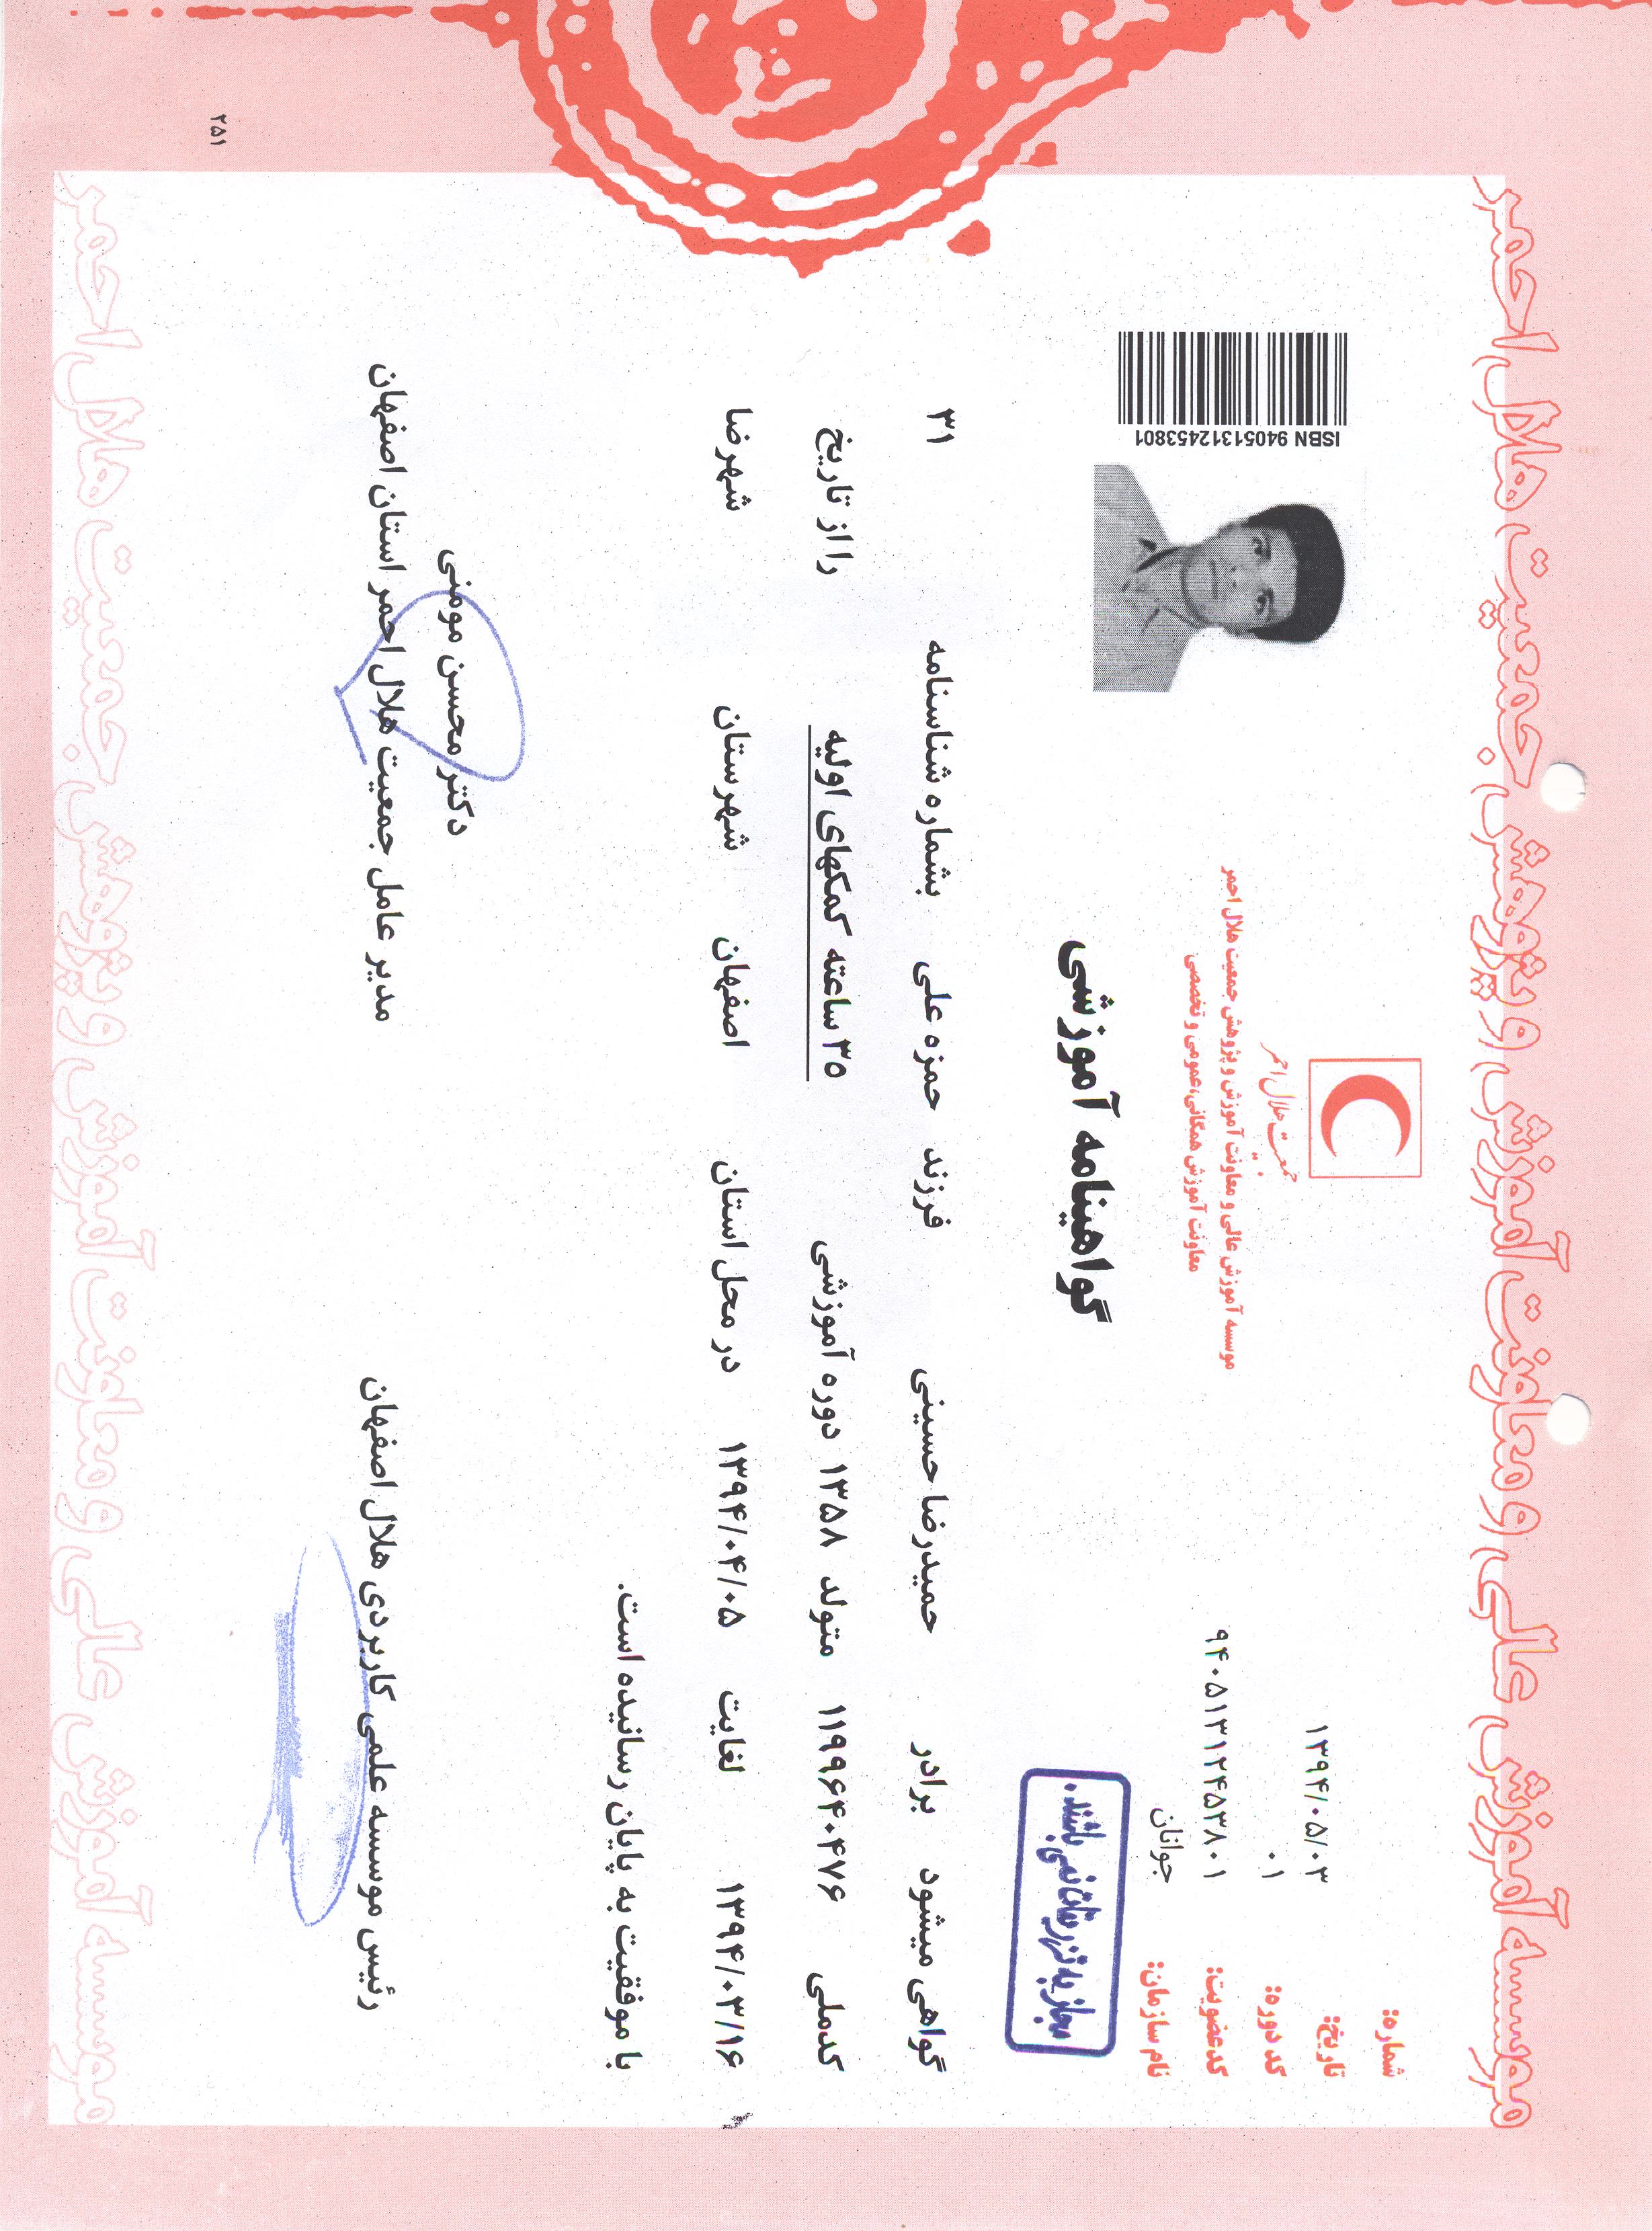 موسسه آموزش عالی و معاونت آموزش و پژوهش جمعیت هلال احمر
جمعیت هلال احمر
موسسه آموزش عالی و معاونت آموزش و پژوهش جمعیت هلال احمر
معاونت آموزش همگانی،عمومی و تخصصی
شماره:
تاریخ: ۱۳۹۴/۰۵/۰۳
کد دوره: ۰۱
کدعضویت: ۹۴۰۵۱۳۱۲۴۵۳۸۰۱
نام سازمان: جوانان
ISBN 94051312453801
گواهینامه آموزشی
مجاز به تزریقات نمی باشند.
گواهی میشود برادر حمیدرضا حسینی فرزند حمزه علی بشماره شناسنامه ۳۱
کدملی ۱۱۹۹۶۴۰۴۷۶ متولد ۱۳۵۸ دوره آموزشی ۳۵ ساعته کمکهای اولیه را از تاریخ
۱۳۹۴/۰۳/۱۶ لغایت ۱۳۹۴/۰۴/۰۵ در محل استان اصفهان شهرستان شهرضا
با موفقیت به پایان رسانیده است.
دکتر محسن مومنی
رئیس موسسه علمی کاربردی هلال اصفهان مدیر عامل جمعیت هلال احمر استان اصفهان
موسسه آموزش عالی و معاونت آموزش و پژوهش جمعیت هلال احمر
۲۵۱